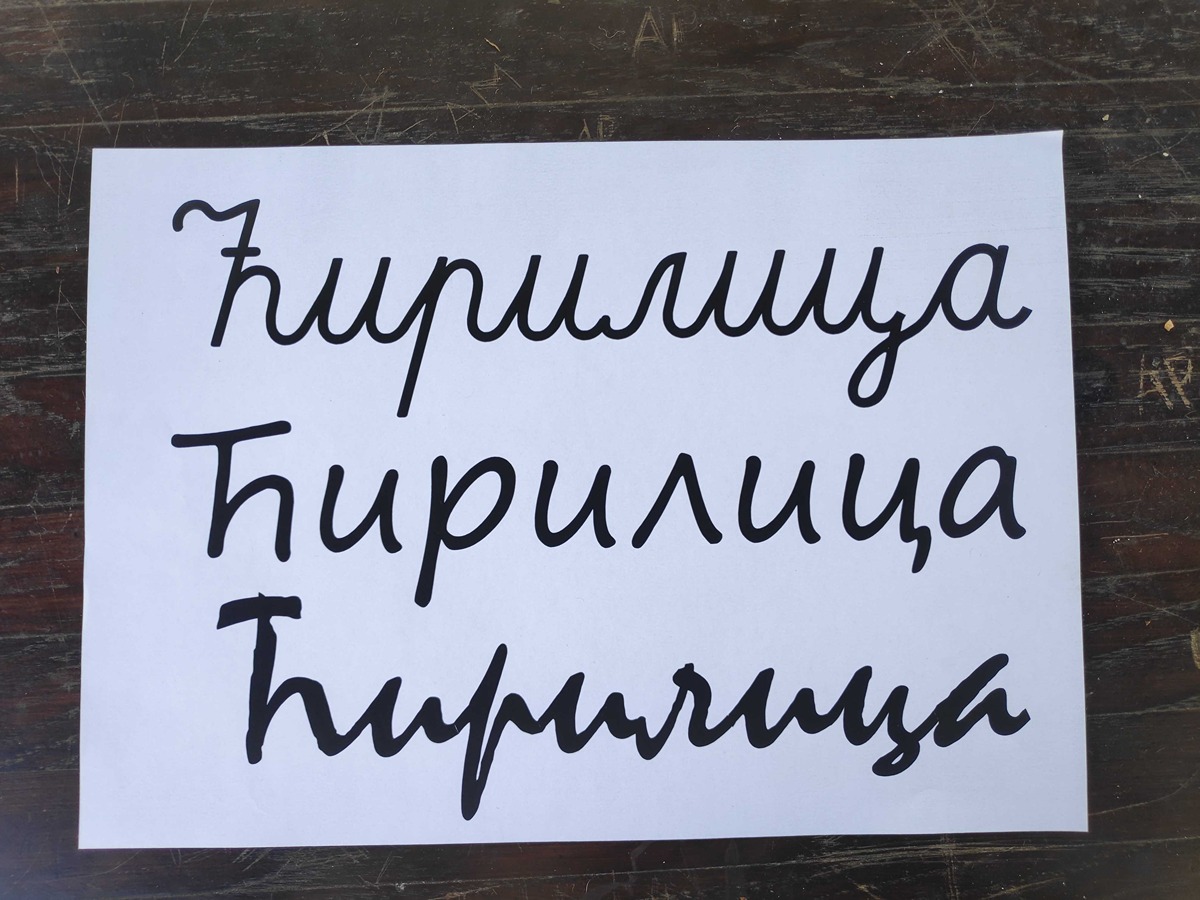 Ћирилица
Ћирилица
Ћирилица